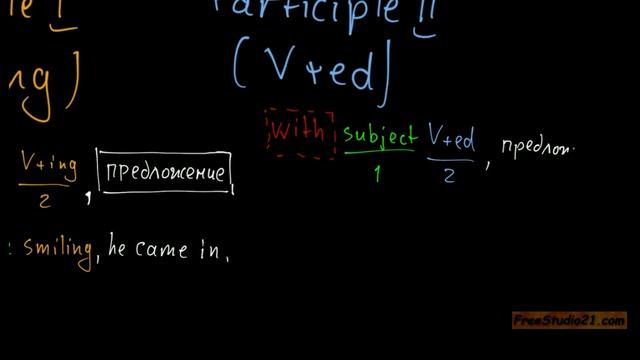 le I
Participle II
ng)
(V+ed)
V+ing
2
, предложение.
with subject V+ed, предлож
1 2
: smiling, he came in.
FreeStudio21.com